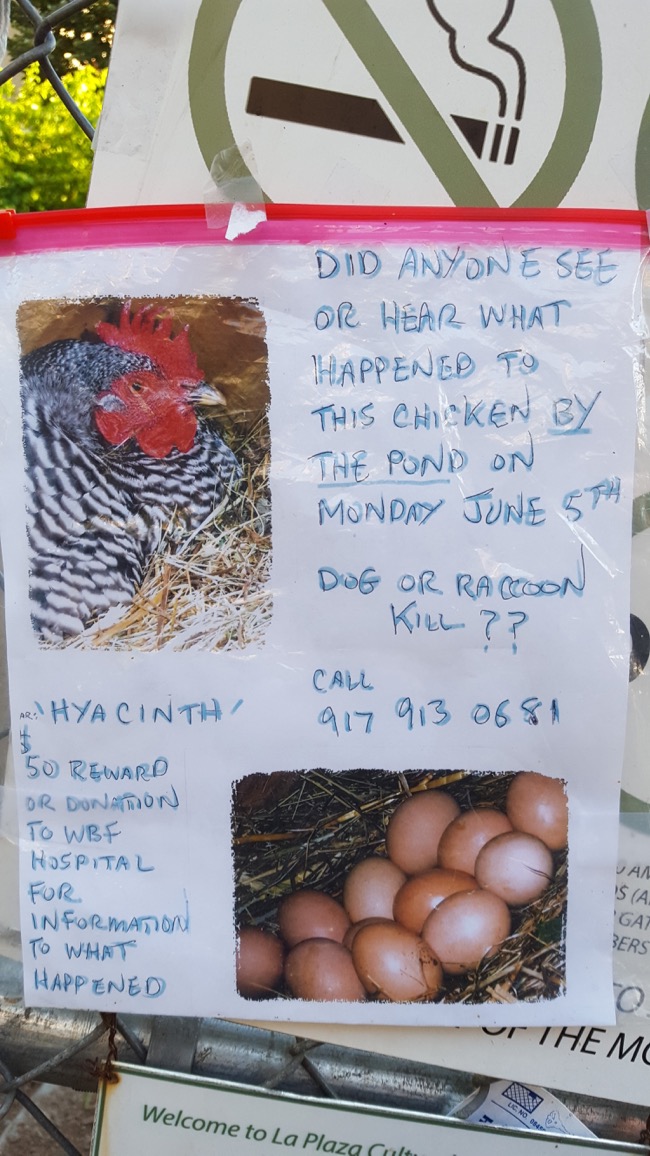 DID ANYONE SEE
OR HEAR WHAT
HAPPENED TO
THIS CHICKEN BY
THE POND ON
MONDAY JUNE 5TH
DOG OR RACCOON
KILL ??
CALL
917 913 0681
'HYACINTH'
$
50 REWARD
OR DONATION
TO WBF
HOSPITAL
FOR
INFORMATION
TO WHAT
HAPPENED
OF THE
Welcome to La Plaza
LIC. NO.